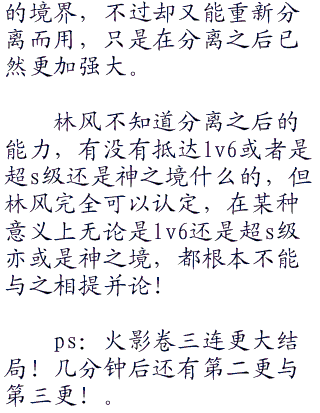 的境界，不过却又能重新分
离而用，只是在分离之后已
然更加强大。
林风不知道分离之后的
能力，有没有抵达lv6或者是
超s级还是神之境什么的，但
林风完全可以认定，在某种
意义上无论是lv6还是超s级
亦或是神之境，都根本不能
与之相提并论！
ps：火影卷三连更大结
局！几分钟后还有第二更与
第三更！。